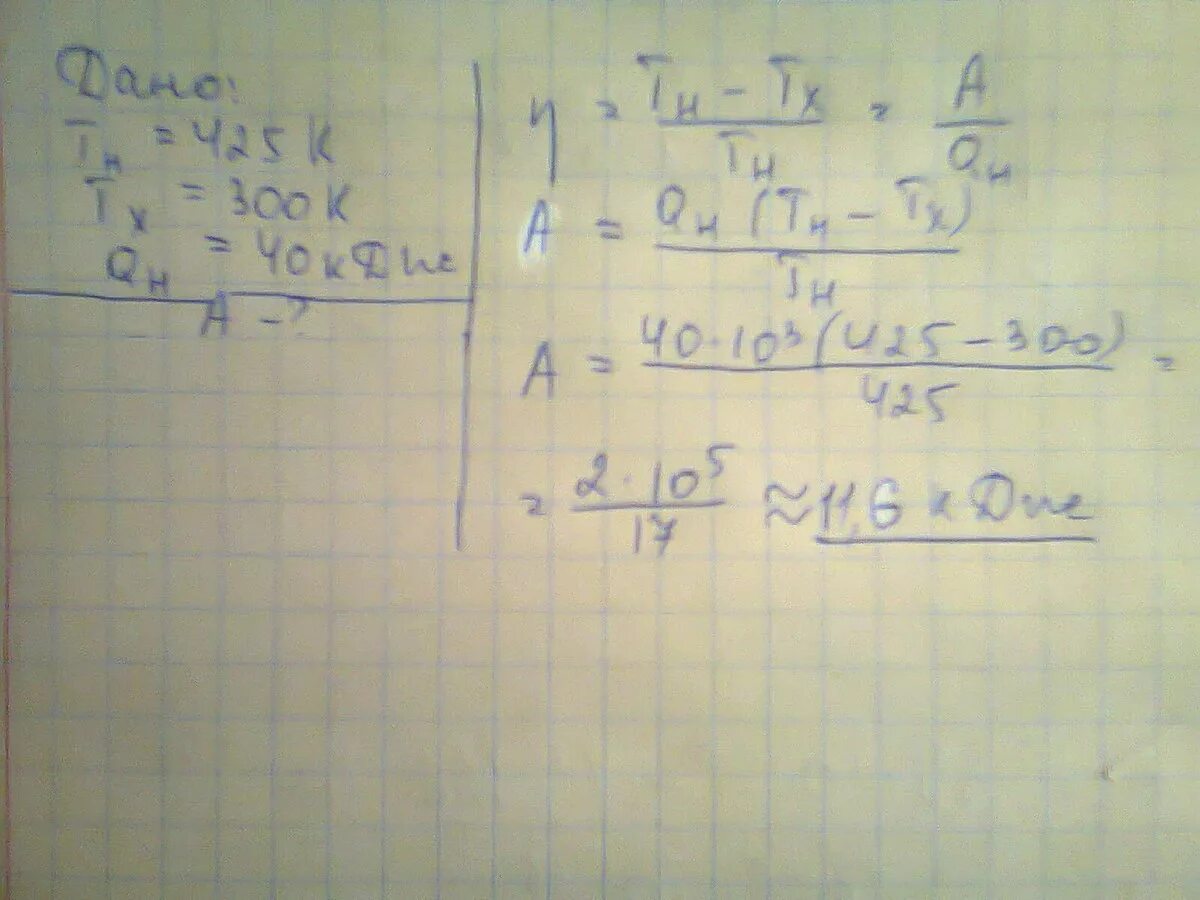 Дано:
Tн = 425 К
Tх = 300 К
Qн = 40 кДж
A - ?
η = (Tн - Tх) / Tн = A / Qн
A = Qн (Tн - Tх) / Tн
A = 40·10³ (425 - 300) / 425 =
= 2·10⁵ / 17 ≈ 11,6 кДж